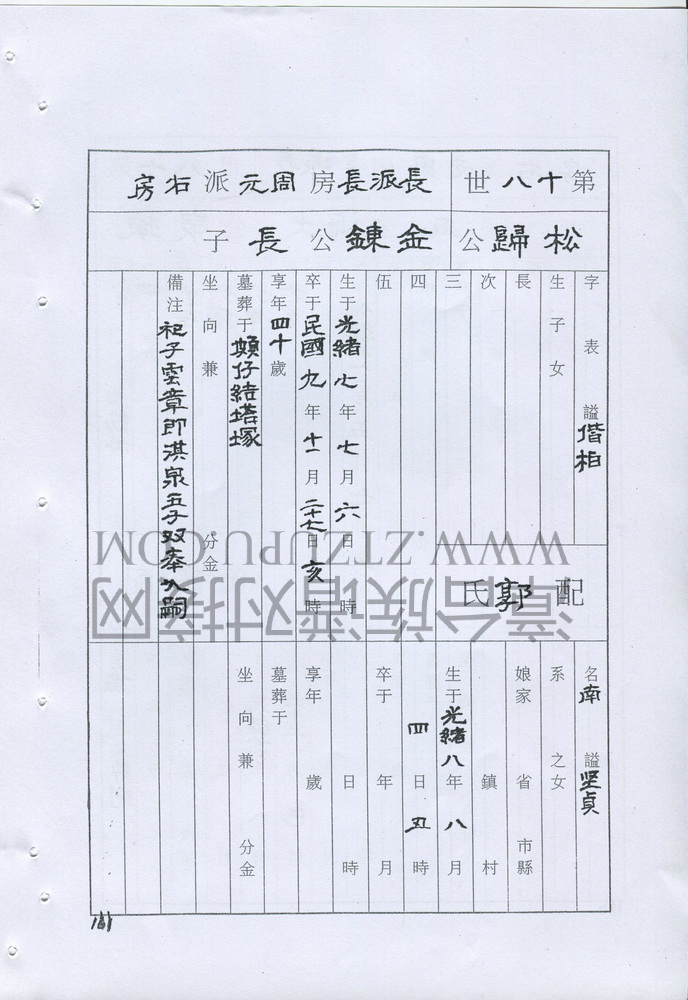 第十八世
長派長房周元派右房
松歸公
金鍊公長子
字表 謚偕柏
生子女
長
次
三
四
伍
生于光緒七年七月六日 時
卒于民國九年十一月二十七日亥時
享年四十歲
墓葬于頗仔結塔塚
坐向兼 分金
備注 祀子雲章即淇泉五子双奉入嗣
配郭氏
名南 謚坚貞
系 之女
娘家 省 市縣
鎮 村
生于光緒八年八月
四日丑時
卒于 年 月
日 時
享年 歲
墓葬于
坐向兼 分金
WWW.ZTZUPU.COM
漳台族谱对接网
161